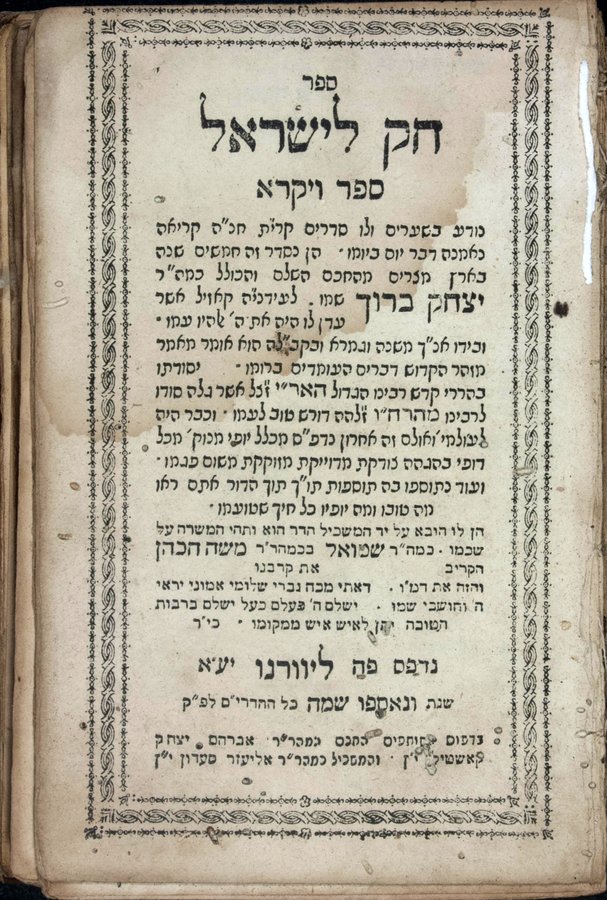 ספר
חק לישראל
ספר ויקרא
נודע בשערים ולו סדרים קרי״ת חנ״ה קריאה
נאמנה דבר יום ביומו · הן נסדר זה חמשים שנה
בארץ מצרים מהחכם השלם והכולל כמה״ר
יצחק ברוך שמו · לעידניה קאזיל אשר
עדן לו היה את ה׳ אלהיו עמו ·
ובידו אנ״ך משנה וגמרא ובקב״לה הוא אומר מאמר
מזהר הקדוש דברים העומדים ברומו · יסודתו
בהררי קדש רבינו הגדול האר״י ז״כל אשר גלה סודו
לרבינו מהרח״ו זלהה דורש טוב לעמו · וכבר היה
לעולמי׳ ואולם זה אחרון נדפ״ס מכלל יופי מנוק׳ מכל
דופי בהגהה בודקת מדוייקת מזוקקת משום פגמו ·
ועוד נתוספו בה תוספות תו״ך תוך הדור אתם ראו
מה טובו ומה יופיו כל חיך שטועמו ·
הן לו הובא על יד המשכיל הדר הוא ותהי המשרה על
שכמו · כמה״ר שמואל בכמהר״ר משה הכהן
הקריב את קרבנו
והזה את דמ״ו · דאתי מכח גברי שלומי אמוני יראי
ה׳ וחושבי שמו · ישלם ה׳ פעלם כעל ישלם ברבות
הטובה לאיש איש ממקומו · כי״ר
נדפס פה ליוורנו יע״א
שנת ונאספו שמה כל העדרי״ם לפ״ק
בדפוס השותפים החכם כמהר״ר אברהם יצחק
קאשטילו י״ן · והמשכיל כמהר״ר אליעזר סעדון י״ן